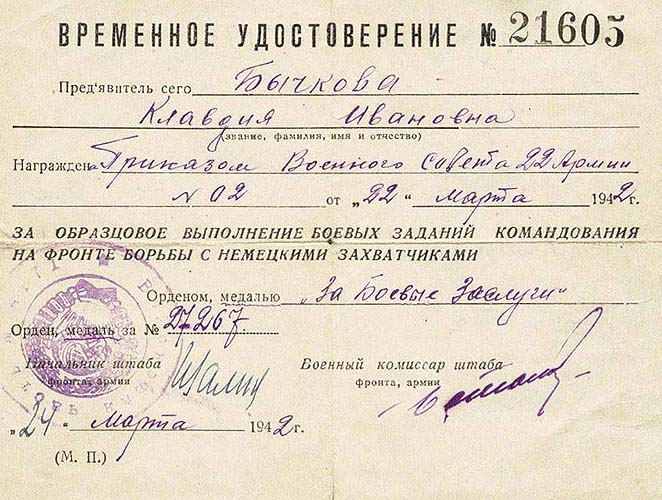 ВРЕМЕННОЕ УДОСТОВЕРЕНИЕ № 21605
Пред'явитель сего Бычкова
Клавдия Ивановна
(звание, фамилия, имя и отчество)
Награжден а Приказом Военного совета 22 Армии
N 02 от „22" марта 1942 г.
ЗА ОБРАЗЦОВОЕ ВЫПОЛНЕНИЕ БОЕВЫХ ЗАДАНИЙ КОМАНДОВАНИЯ
НА ФРОНТЕ БОРЬБЫ С НЕМЕЦКИМИ ЗАХВАТЧИКАМИ
Орденом, медалью „За Боевые Заслуги"
Орден, медаль за № 27267.
Начальник штаба Военный комиссар штаба
фронта, армии фронта, армии
„24" марта 1942 г.
(М. П.)